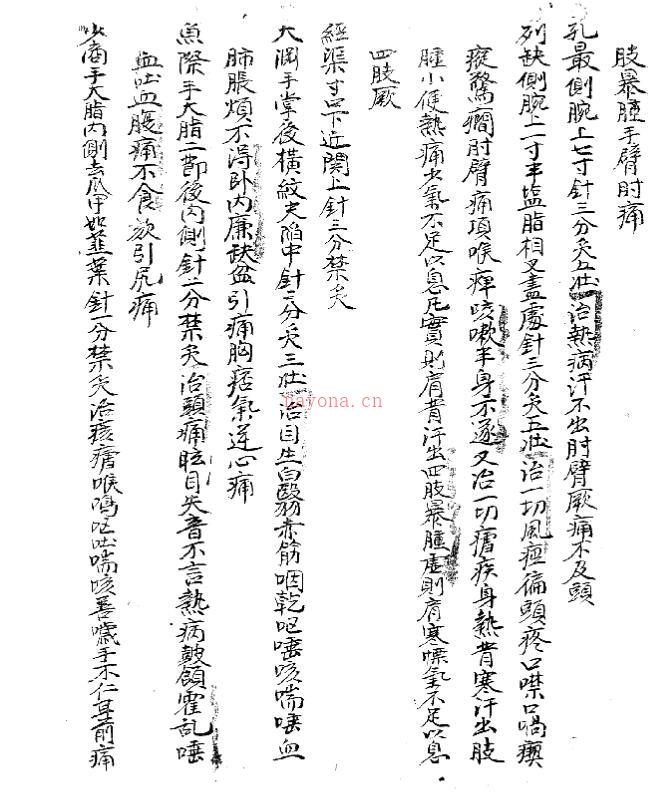 肢暴腫手臂肘痛
孔最側腕上七寸針三分灸五壯治熱病汗不出肘臂厥痛不及頭
列缺側腕上一寸半塩脂相叉盡處針三分灸五壯治一切風痙偏頭疼口噤口喎瘈
瘲驚癇肘臂痛項喉痺咳嗽半身不遂又治一切瘧疾身熱背寒汗出肢
腫小便熱痛少氣不足以息凡實則肩背汗出四肢暴腫虛則肩寒慄氣不足以息
四肢厥
經渠寸口下近関上針三分禁灸
大渊手掌後橫紋尖陷中針二分灸三壯治目生白翳赤筋咽乾呕唾咳喘唾血
肺脹煩不得卧内廉缺盆引痛胸痞氣逆心痛
魚際手大脂二節後内側針二分禁灸治頭痛眩目失音不言熱病皷頷霍乱唾
血吐血腹痛不食欬引尻痛
少商手大脂内側去爪甲如韭葉針一分禁灸治痎瘧喉鳴呕吐喘咳善噦手不仁耳前痛
nayona.cn